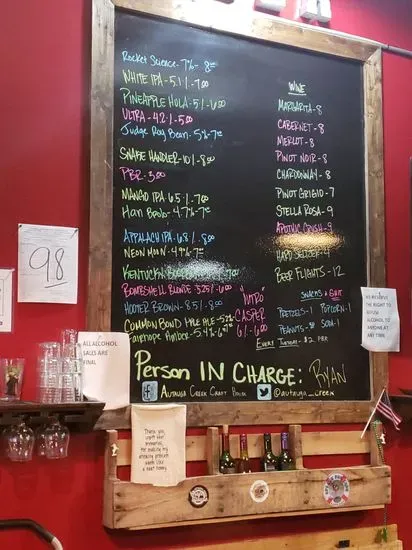 Rocket Science - 7% - 8.00
WHITE IPA - 5.1 / - 7.00
PINEAPPLE HOLA - 5 / - 6.00
ULTRA - 4.2 / - 5.00
Judge Roy Bean - 5% - 7.00
SNAKE HANDLER - 10 / - 8.00
PBR - 3.00
MANGO IPA 6.5 / - 7.00
4.7% - 7.00
APPALACH IPA - 6.8 / - 8.00
NEON MOON - 4.9% - 7.00
KENTUCKY 7.00
BOMBSHELL BLONDE - 5.25 / - 6.00
HOOTER BROWN - 8.5 / - 8.00
COMMON BOND PALE ALE - 5.2%
Fairhope Amber - 5.4% - 6.75
"NITRO"
CASPER
6 / - 6.00
WINE
MARGARITA - 8
CABERNET - 8
MERLOT - 8
PINOT NOIR - 8
CHARDONNAY - 8
PINOT GRIGIO - 7
STELLA ROSA - 9
APOTHIC CRUSH - 9
HARD SELTZER - 4
BEER FLIGHTS - 12
SNACKS &
PRETZELS - 1 POPCORN - 1
PEANUTS - SODA - 1
EVERY TUESDAY - $2 PBR
Person IN CHARGE: RYAN
AUTAUGA CREEK CRAFT HOUSE @autauga_creek
98
ALL ALCOHOL
SALES ARE
FINAL
WE RESERVE
THE RIGHT TO
REFUSE
ALCOHOL TO
ANYONE AT
ANY TIME
Thank you,